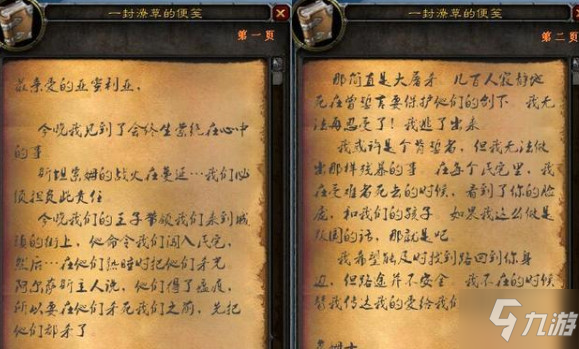 一封潦草的便笺
第一页
最亲爱的亚蜜利亚，
今晚我见到了会终生萦绕在心中
的事
斯坦索姆的战火在蔓延…我们必
须担负此责任
今晚我们的王子带领我们来到城
镇的街上，他命令我们闯入民宅，
然后…在他们熟睡时把他们杀光
阿尔萨斯主人说，他们得了瘟疫，
所以要在他们杀死我们之前，先把
他们都杀了
一封潦草的便笺
第二页
那简直是大屠杀 几百人寂静地
死在曾誓言要保护他们的剑下 我无
法再忍受了！我逃了出来
我或许是个背誓者，但我无法做
出那样残暴的事 在每个民宅里，我
在受难者死去的时候，看到了你的脸
庞，和我们的孩子 如果我这么做是
叛国的话，那就是吧
我希望能及时找到路回到你身
边，但路途并不安全 我不在的时候
替我传达我的爱给我们
九游